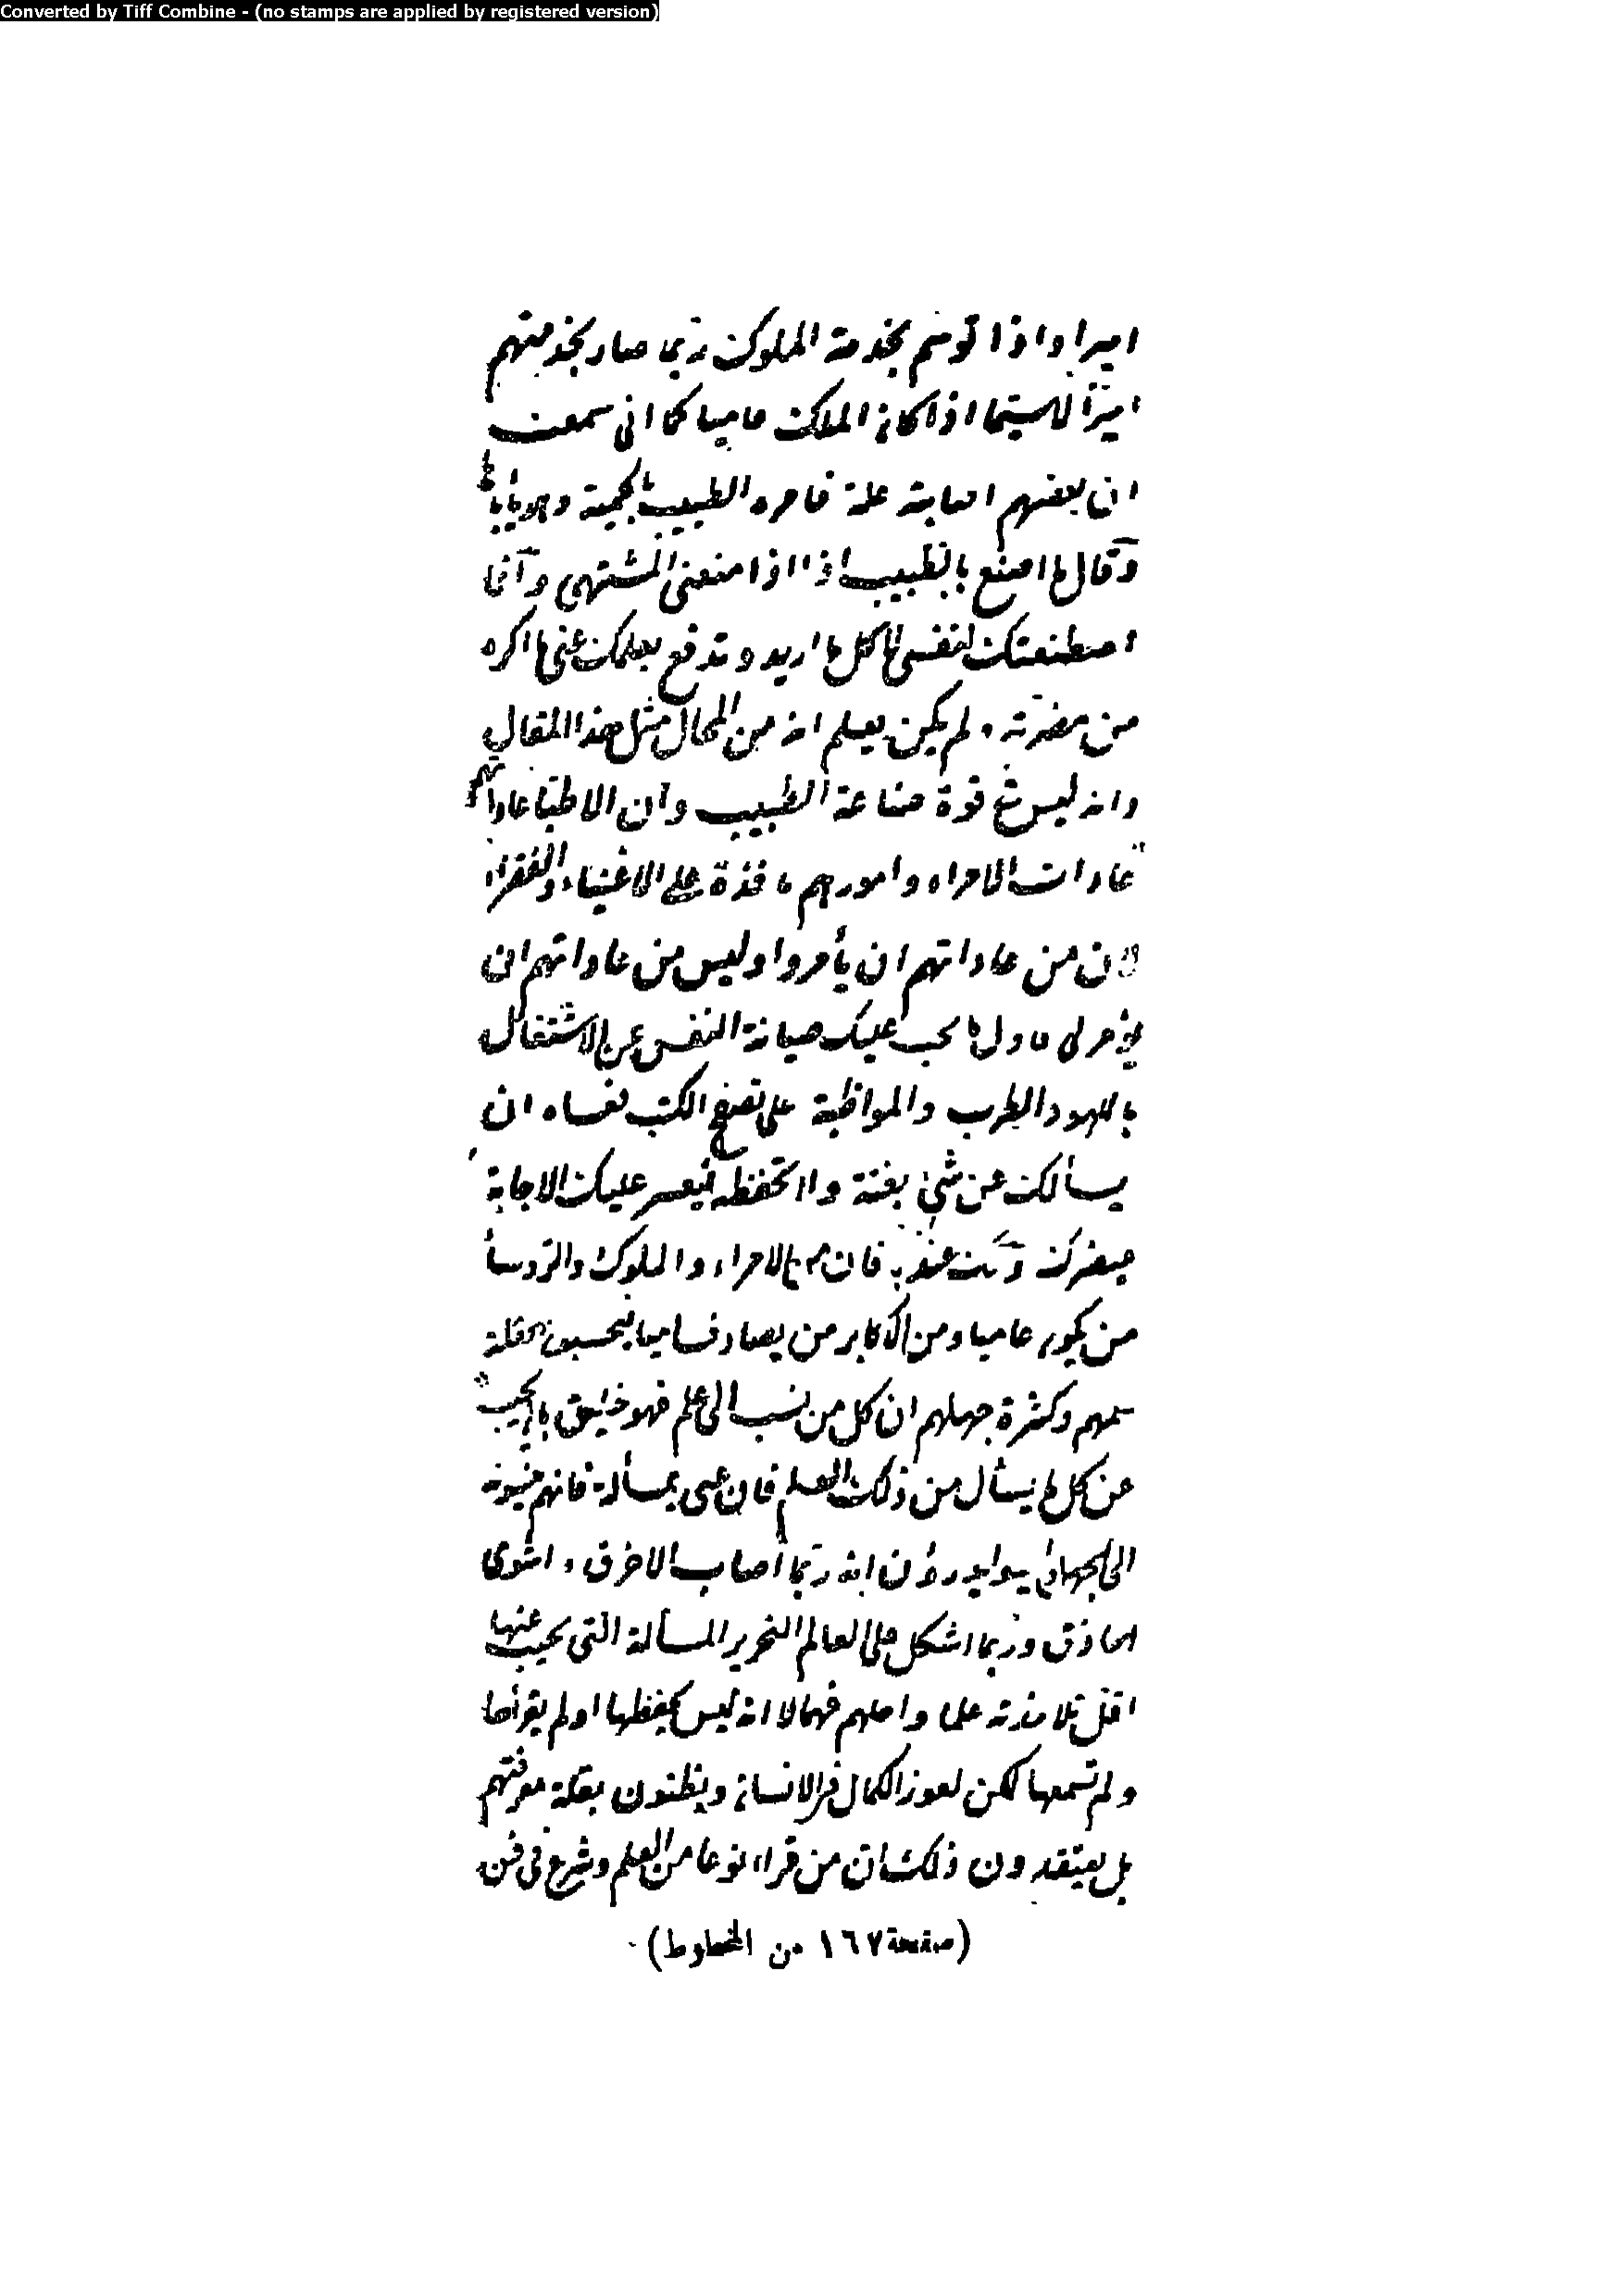 Converted by Tiff Combine - (no stamps are applied by registered version)
اميرا واذا توسم بخدمة الملوك ربما صار بخدمتهم
اميرا لاسيما اذا كان الملك عاميا كما انى سمعت
ان بعضهم اصابته علة فامره الطبيب بالحمية
وقال ما اصنع بالطبيب اذا منعنى المشتهى وانما
اصطنعتك لنفسى لآكل ما اريد وتدفع بعلمك عنى ما اكره
من مضرته ولم يكن يعلم انه من المحال مثل هذا المقال
وانه ليس فى قوة صناعة الطبيب وان الاطبا عاداتهم
عادات الامراء وامورهم نافذة على الاغنياء والفقراء
لان من عاداتهم ان يأمروا وليس من عاداتهم ان
يجب عليك صيانة النفس عن الاشتغال
باللهو والطرب والمواظبة على تصفح الكتب فعساه ان
يسألك عن شئ بغتة ولا تحفظه فيعسر عليك الاجابة
فان من الامراء والملوك والرؤسا
من يكون عاميا ومن الاكابر من يصادف عاميا فيحسبون لقلة
علمهم وكثرة جهلهم ان كل من نسب الى علم فهو خليق بان يجيب
عن كل ما يسأل من ذلك العلم فان عمى بمسألة فانهم ينسبونه
الى الجهل ولا يدرون انه ربما اصاب الاخرق واشوى
الحاذق وربما اشكل على العالم النحرير المسألة التى يجيب عنها
اقل تلامذته علما واقلهم فهما لا انه ليس يحفظها او لم يقرأها
ولم تسمعها لكن لعوز الكمال فى الانسان ويظنون بقلة معرفتهم
بل يعتقدون ذلك ان من قراء نوعا من العلم وشرع فى فن
(صفحة ١٦٧ من المخطوط)